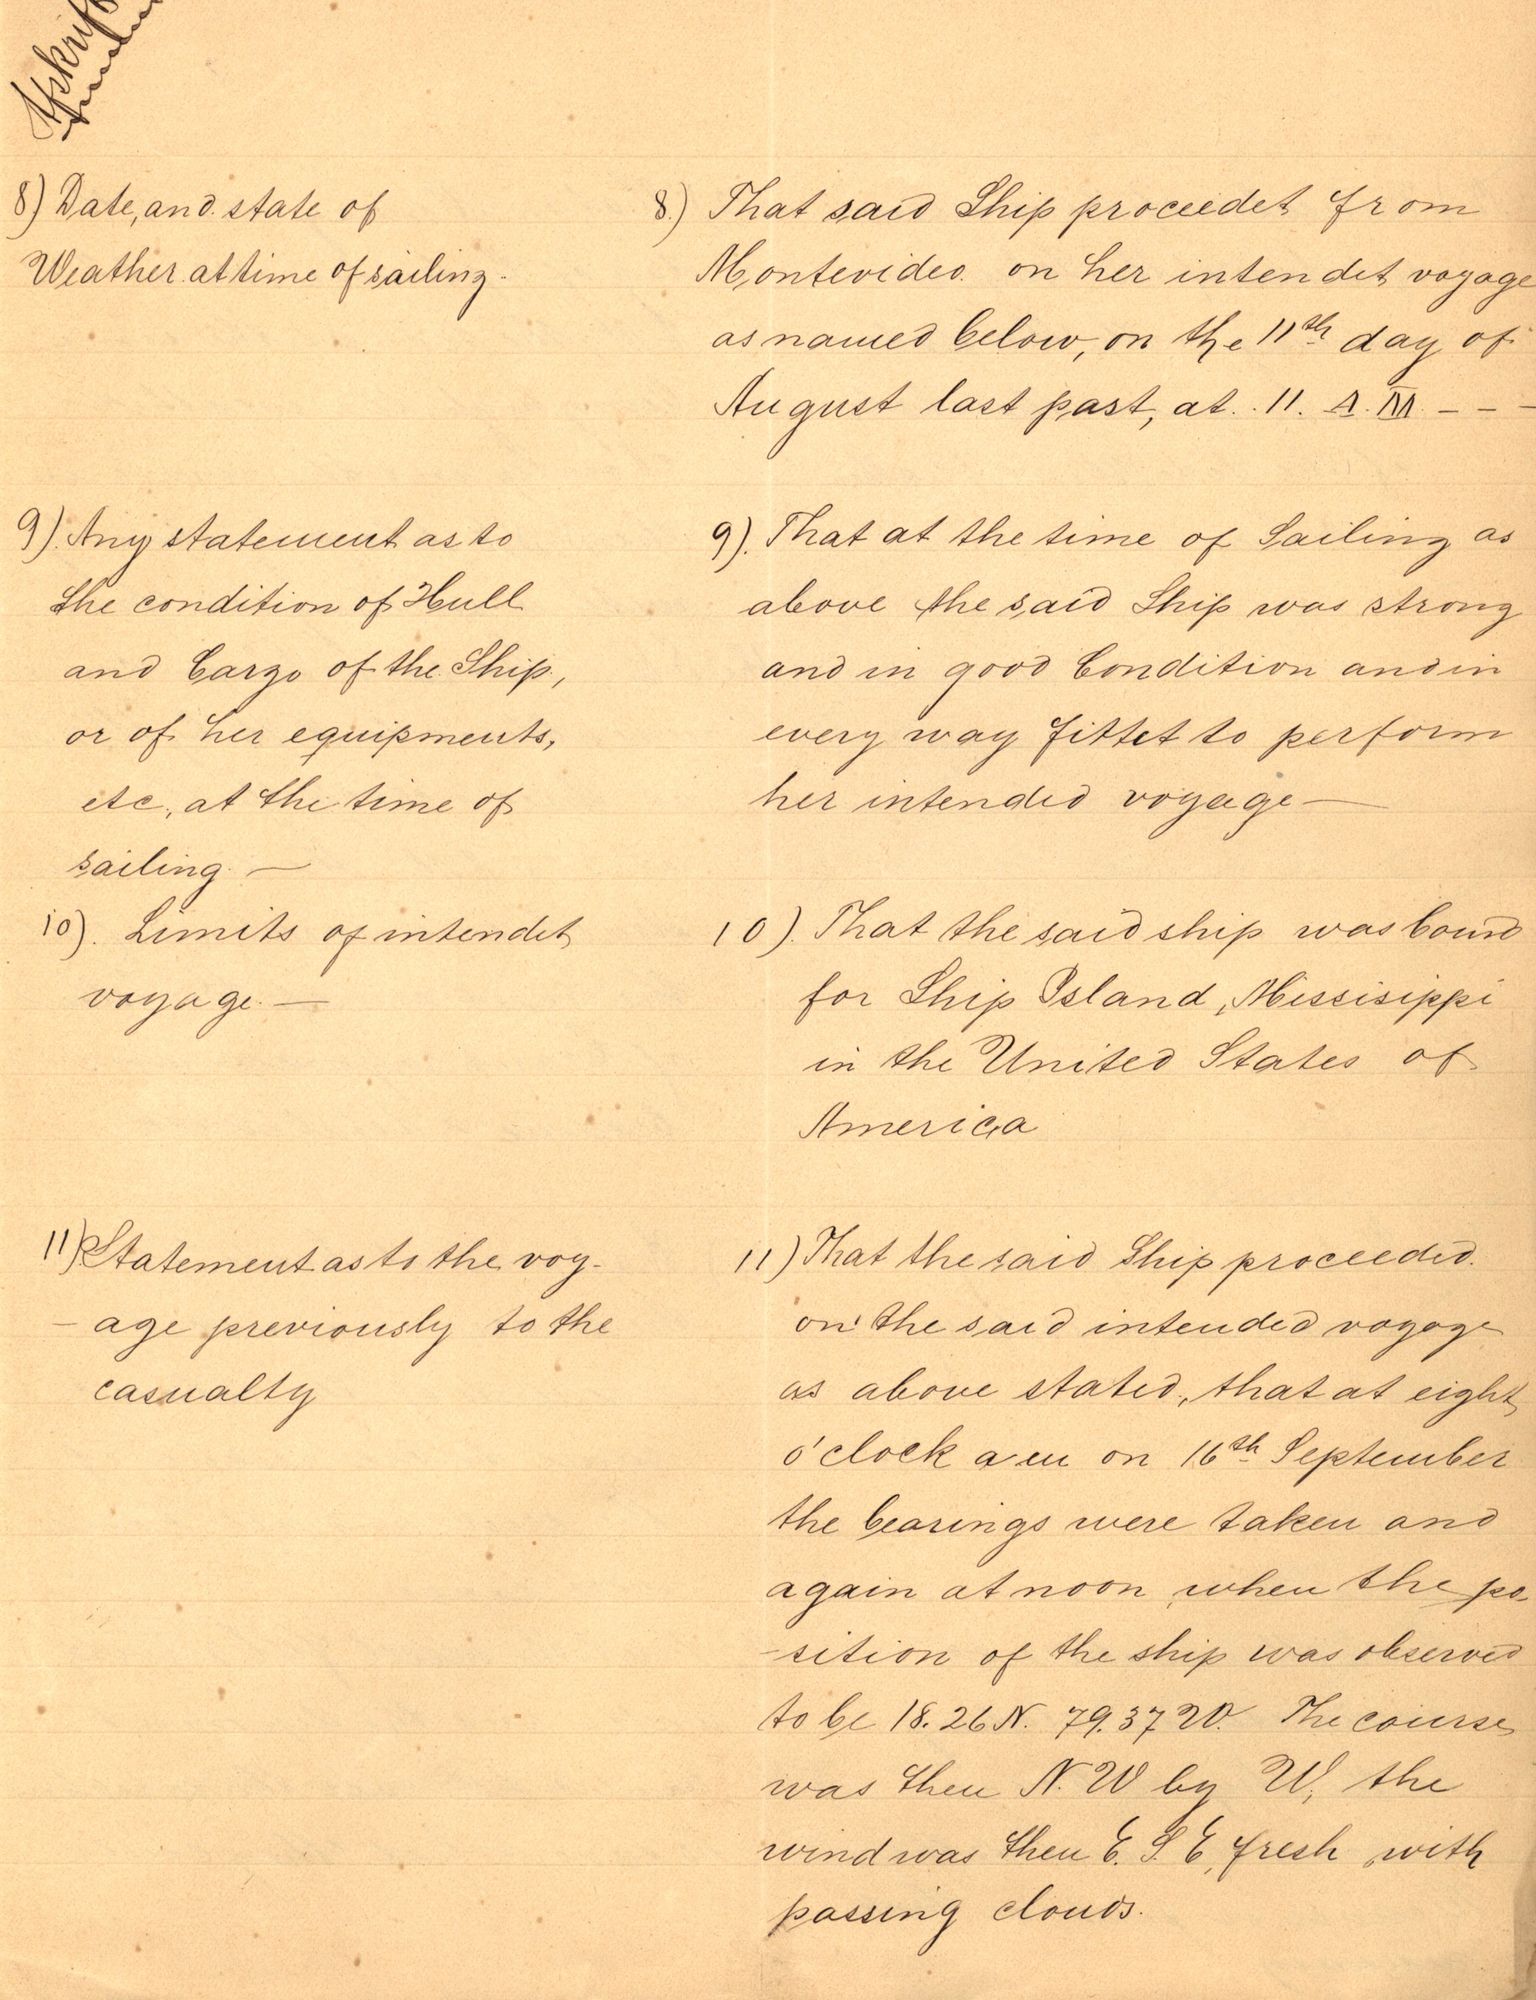 Afskrift
8) Date, and state of
Weather at time of sailing.
8.) That said Ship proceedet from
Montevideo on her intendet voyage
as named below, on the 11th day of
August last past, at 11. A.M. - - -
9). Any statement as to
the condition of Hull
and Cargo of the Ship,
or of her equipments,
etc, at the time of
sailing. —
9). That at the time of Sailing as
above the said Ship was strong
and in good Condition and in
every way fittet to perform
her intended voyage —
10). Limits of intendet
voyage. —
10). That the said ship was bound
for Ship Island, Missisippi
in the United States of
America
11) Statement as to the voy-
- age previously to the
casualty
11) That the said Ship proceeded
on the said intended voyage
as above stated, that at eight
o'clock a m on 16th September
the bearings were taken and
again at noon when the po-
-sition of the ship was observed
to be 18.26 N. 79.37 W. The course
was then N. W by W, the
wind was then E. S. E, fresh with
passing clouds.